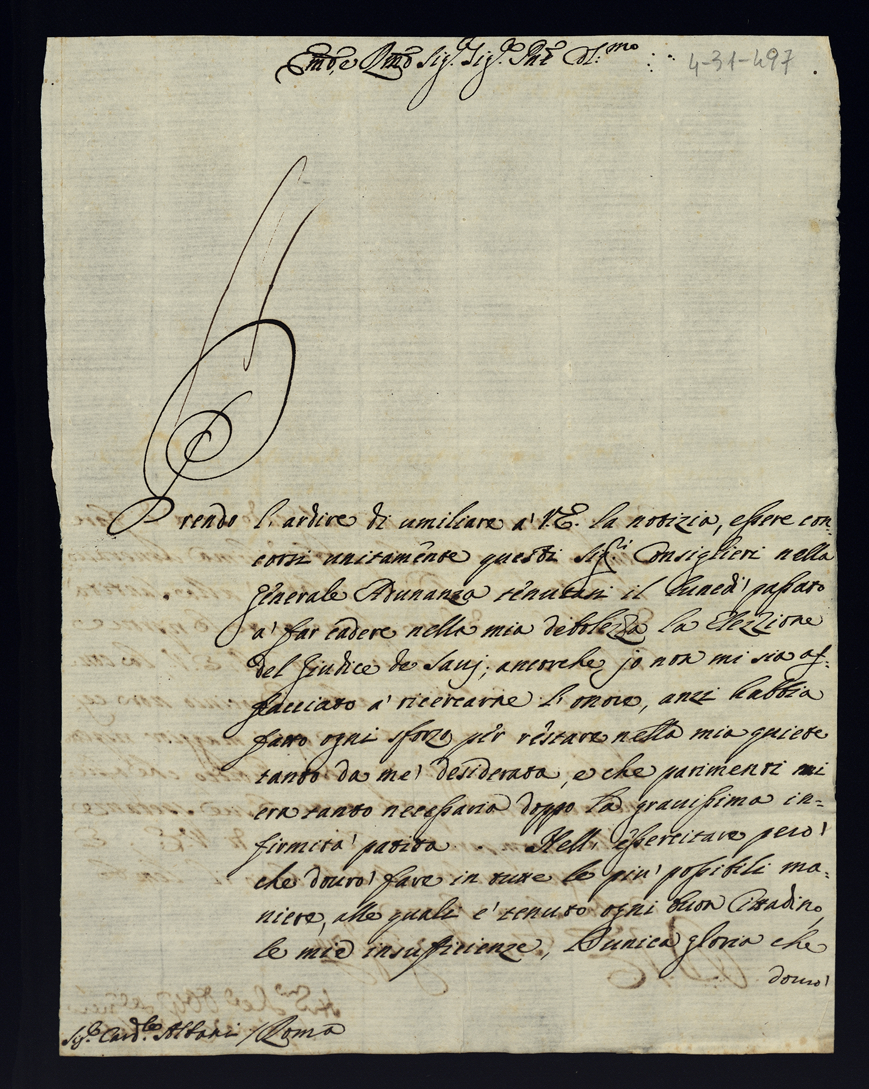 Em̃o, e Rm̃o Sig.r Sig.r Pñe Col.mo
4-31-497
Prendo l'ardire di umiliare a' V.E. la notizia, essere con-
corsi unitamẽnte questi Sig.ri Consiglieri nella
Generale Adunanza tenutasi il Lunedi' passato
a' far cadere nella mia debolezza la Elezzione
del Giudice de Savj; ancorche jo non mi sia af-
facciato a' ricercarne l'onore, anzi habbia
fatto ogni sforzo per restare nella mia quiete
tanto da me' desiderata, e che parimenti mi
era tanto necessaria doppo la gravissima in-
firmita' patita. Nell'essercitare pero'
che dovro' fare in tutte le piu' possibili ma-
niere, alle quali e' tenuto ogni buon Cittadino,
le mie insufficienze, l'unica gloria che
dovro'
Sig.r Card.le Albani / Roma